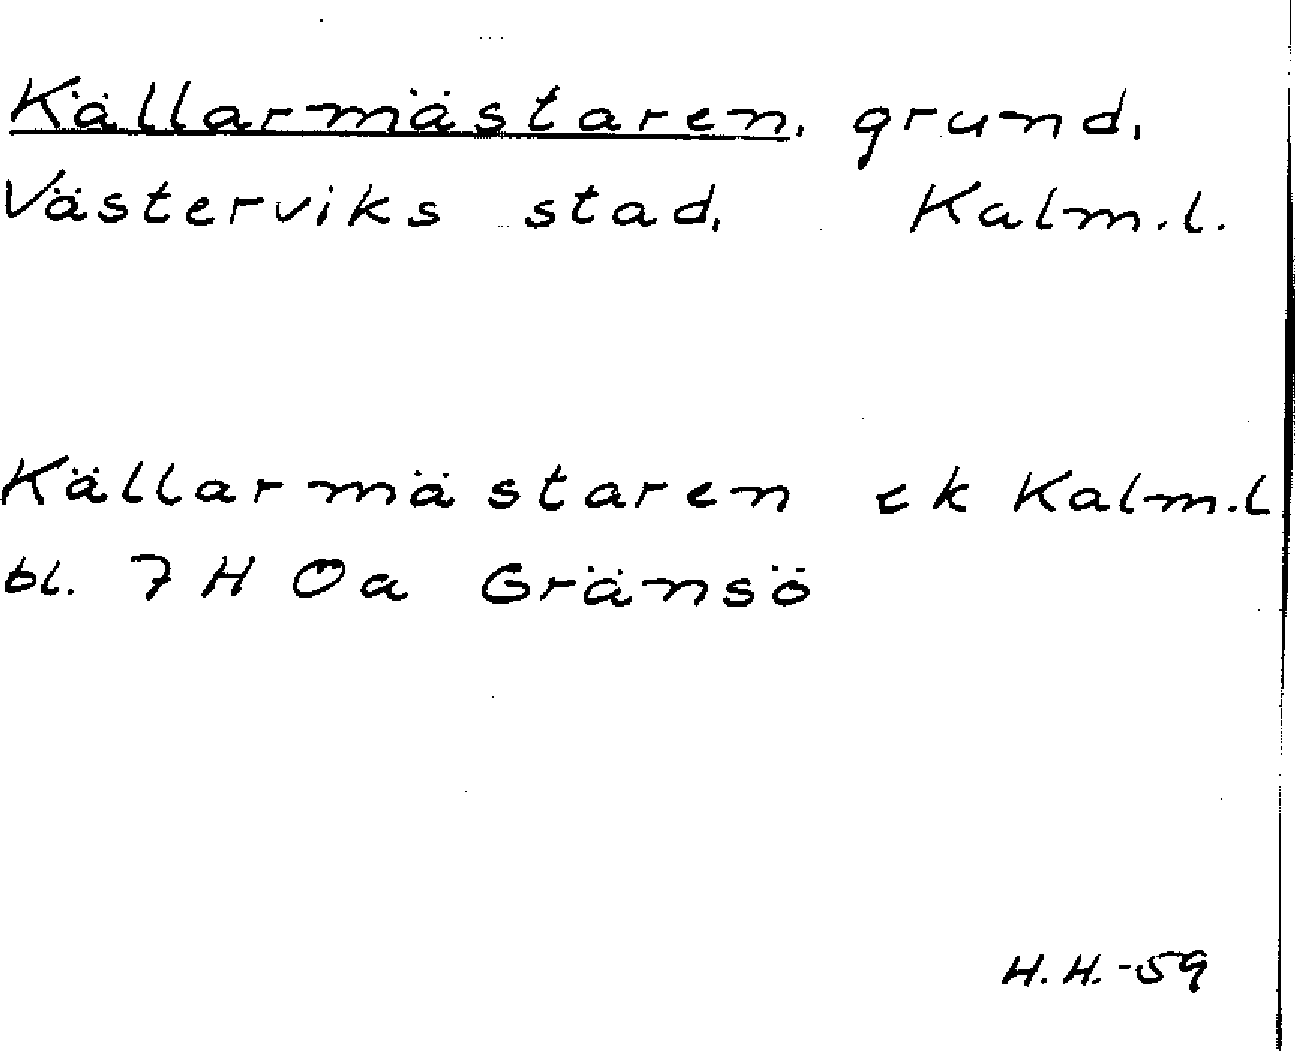 Källarmästaren, grund,
Västerviks stad, Kalm.l.
Källarmästaren ek Kalm.l
bl. 7 H Oa Gränsö
H.H.-59